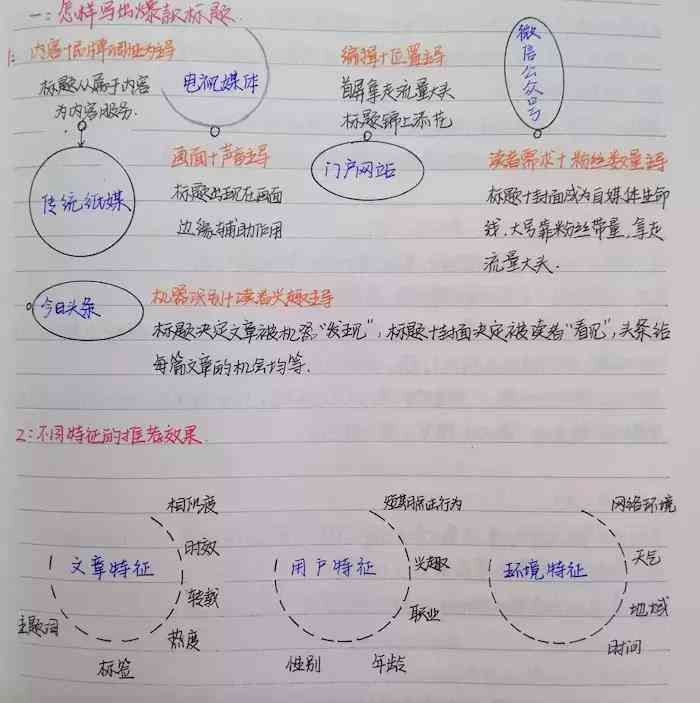 一：怎样写出爆款标题
1：
内容+品牌调性为主导
标题从属于内容
为内容服务.
传统纸媒
电视媒体
画面+声音主导
标题出现在画面
边缘辅助作用
编辑+位置主导
首屏拿走流量大头
标题锦上添花
门户网站
微信公众号
读者需求+粉丝数量主导
标题+封面成为自媒体生命
线,大号靠粉丝带量,拿走
流量大头.
今日头条
机器识别+读者兴趣主导
标题决定文章被机器“发现”,标题+封面决定被读者“看见”,头条给
每篇文章的机会均等.
2：不同特征的推荐效果
文章特征
相似度
时效
转载
热度
标签
主题词
用户特征
短期点击行为
兴趣
职业
年龄
性别
环境特征
网络环境
天气
地域
时间